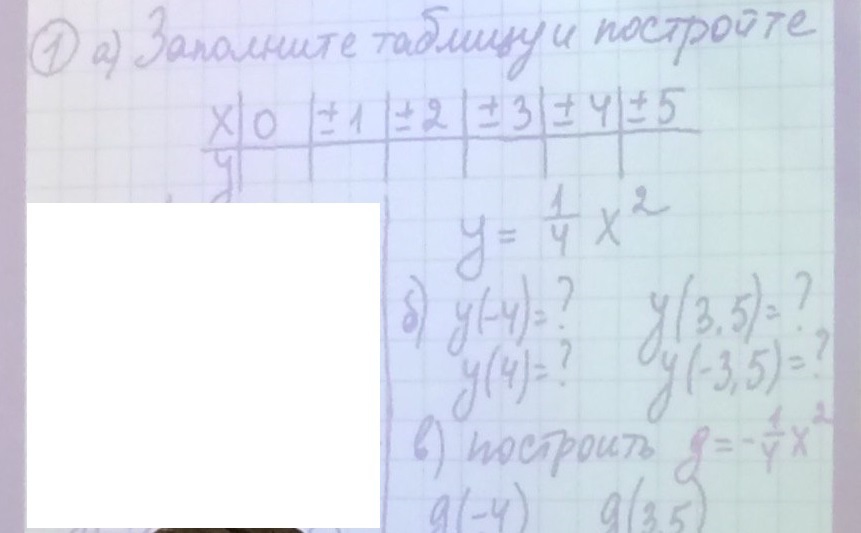 ① а) Заполните таблицу и постройте
x | 0 | ±1 | ±2 | ±3 | ±4 | ±5
y
y = 1/4 x²
б) y(-4)=? y(3,5)=?
y(4)=? y(-3,5)=?
в) построить g=-1/4 x²
g(-4) g(3,5)